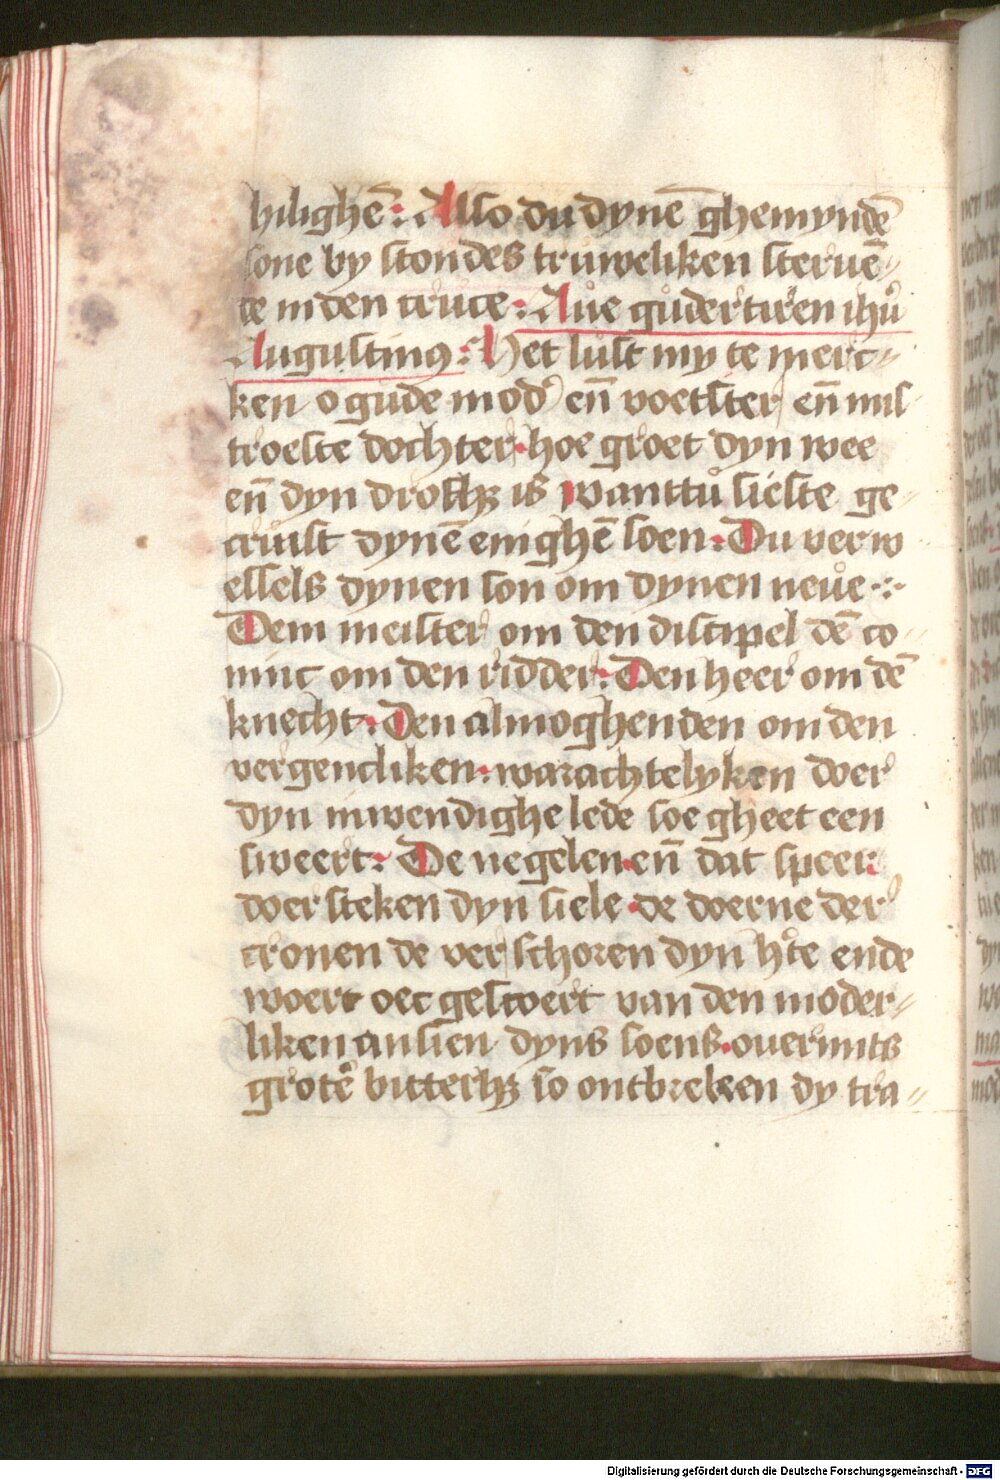 hilighē: Also du dynē ghemyndē
sone by stondes truweliken steruē
te in den cruce: Aue guderͭiren ihū
Augustinꝰ: Het lust my te merc
ken o gude mod' eñ voetster eñ mil
troeste dochter· hoe groet dyn wee
eñ dyn drofhꝫ is wanttů sieste ge
cruist dynē enighē soen: Du verw
essels dynen son om dynen neůe
Dem meister om den discipel dē co
ninc om den ridder: Den heer om dē
knecht: Den almoghenden om den
vergencliken: warachtelyken doer
dyn inwendighe lede soe gheet een
sweert: De negelen eñ dat speer
doersteken dyn siele· de doerne der
cronen de verschoren dyn hͭte ende
woert oec geswert van den moder
liken ansien dyns soens· ouermits
grotē bitterhꝫ so ontbreken dy tra
Digitalisierung gefördert durch die Deutsche Forschungsgemeinschaft - DFG